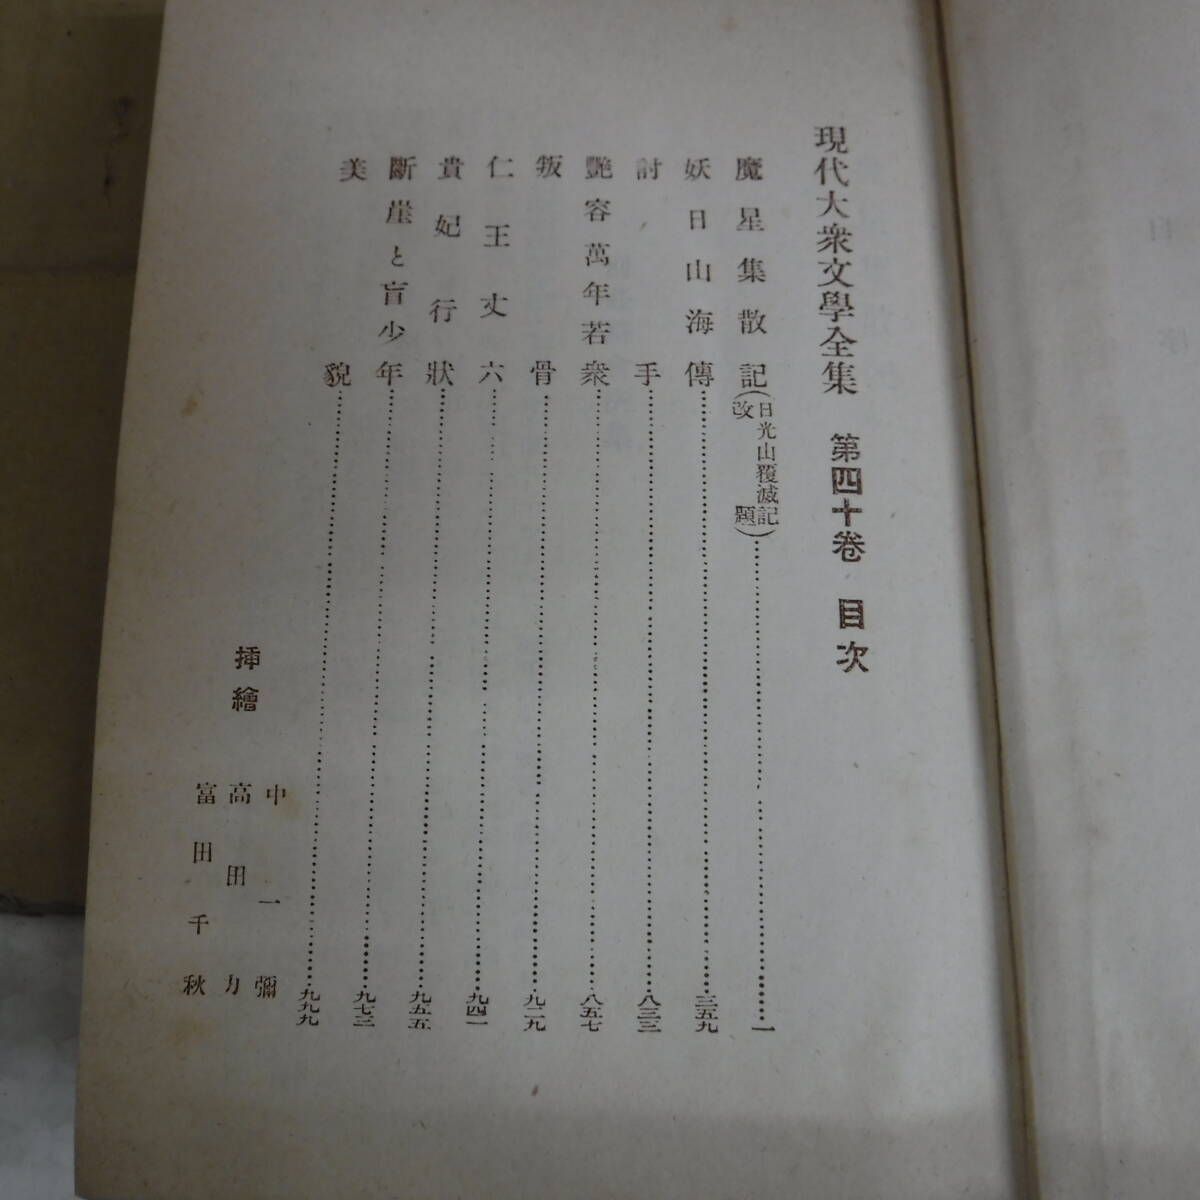 現代大衆文學全集 第四十卷 目次
魔星集散記(日光山覆滅記改題)……一
妖日山海傳……三五九
討手……八三三
艷容萬年若衆……八五七
叛骨……九二九
仁王丈六……九四一
貴妃行狀……九五五
斷崖と盲少年……九七三
美貌……九九九
挿繪
中一彌
高田力
富田千秋